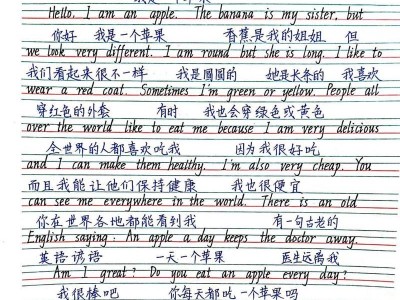 Hello, I am an apple. The banana is my sister, but
你好 我是一个苹果 香蕉是我的姐姐 但
we look very different. I am round but she is long. I like to
我们看起来很不一样 我是圆圆的 她是长条的 我喜欢
wear a red coat. Sometimes I'm green or yellow. People all
穿红色的外套 有时 我也会穿绿色或黄色
over the world like to eat me because I am very delicious
全世界的人都喜欢吃我 因为我很好吃
and I can make them healthy. I'm also very cheap. You
而且我能让他们保持健康 我也很便宜
can see me everywhere in the world. There is an old
你在世界各地都能看到我 有一句古老的
English saying: An apple a day keeps the doctor away.
英语谚语 一天一个苹果 医生远离我
Am I great? Do you eat an apple every day?
我很棒吧 你每天都吃一个苹果吗